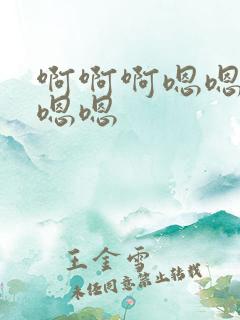 啊啊啊嗯嗯
嗯嗯
王金雪
未经同意禁止转载